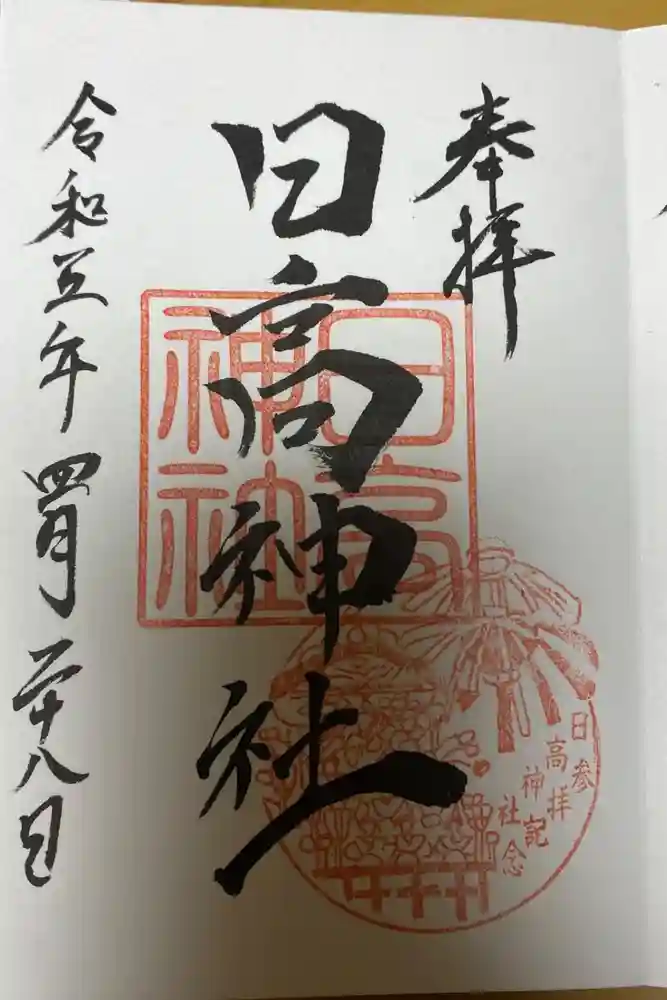 奉拝
日高神社
令和五年四月二十八日
日高
神社
参拝記念
日高神社